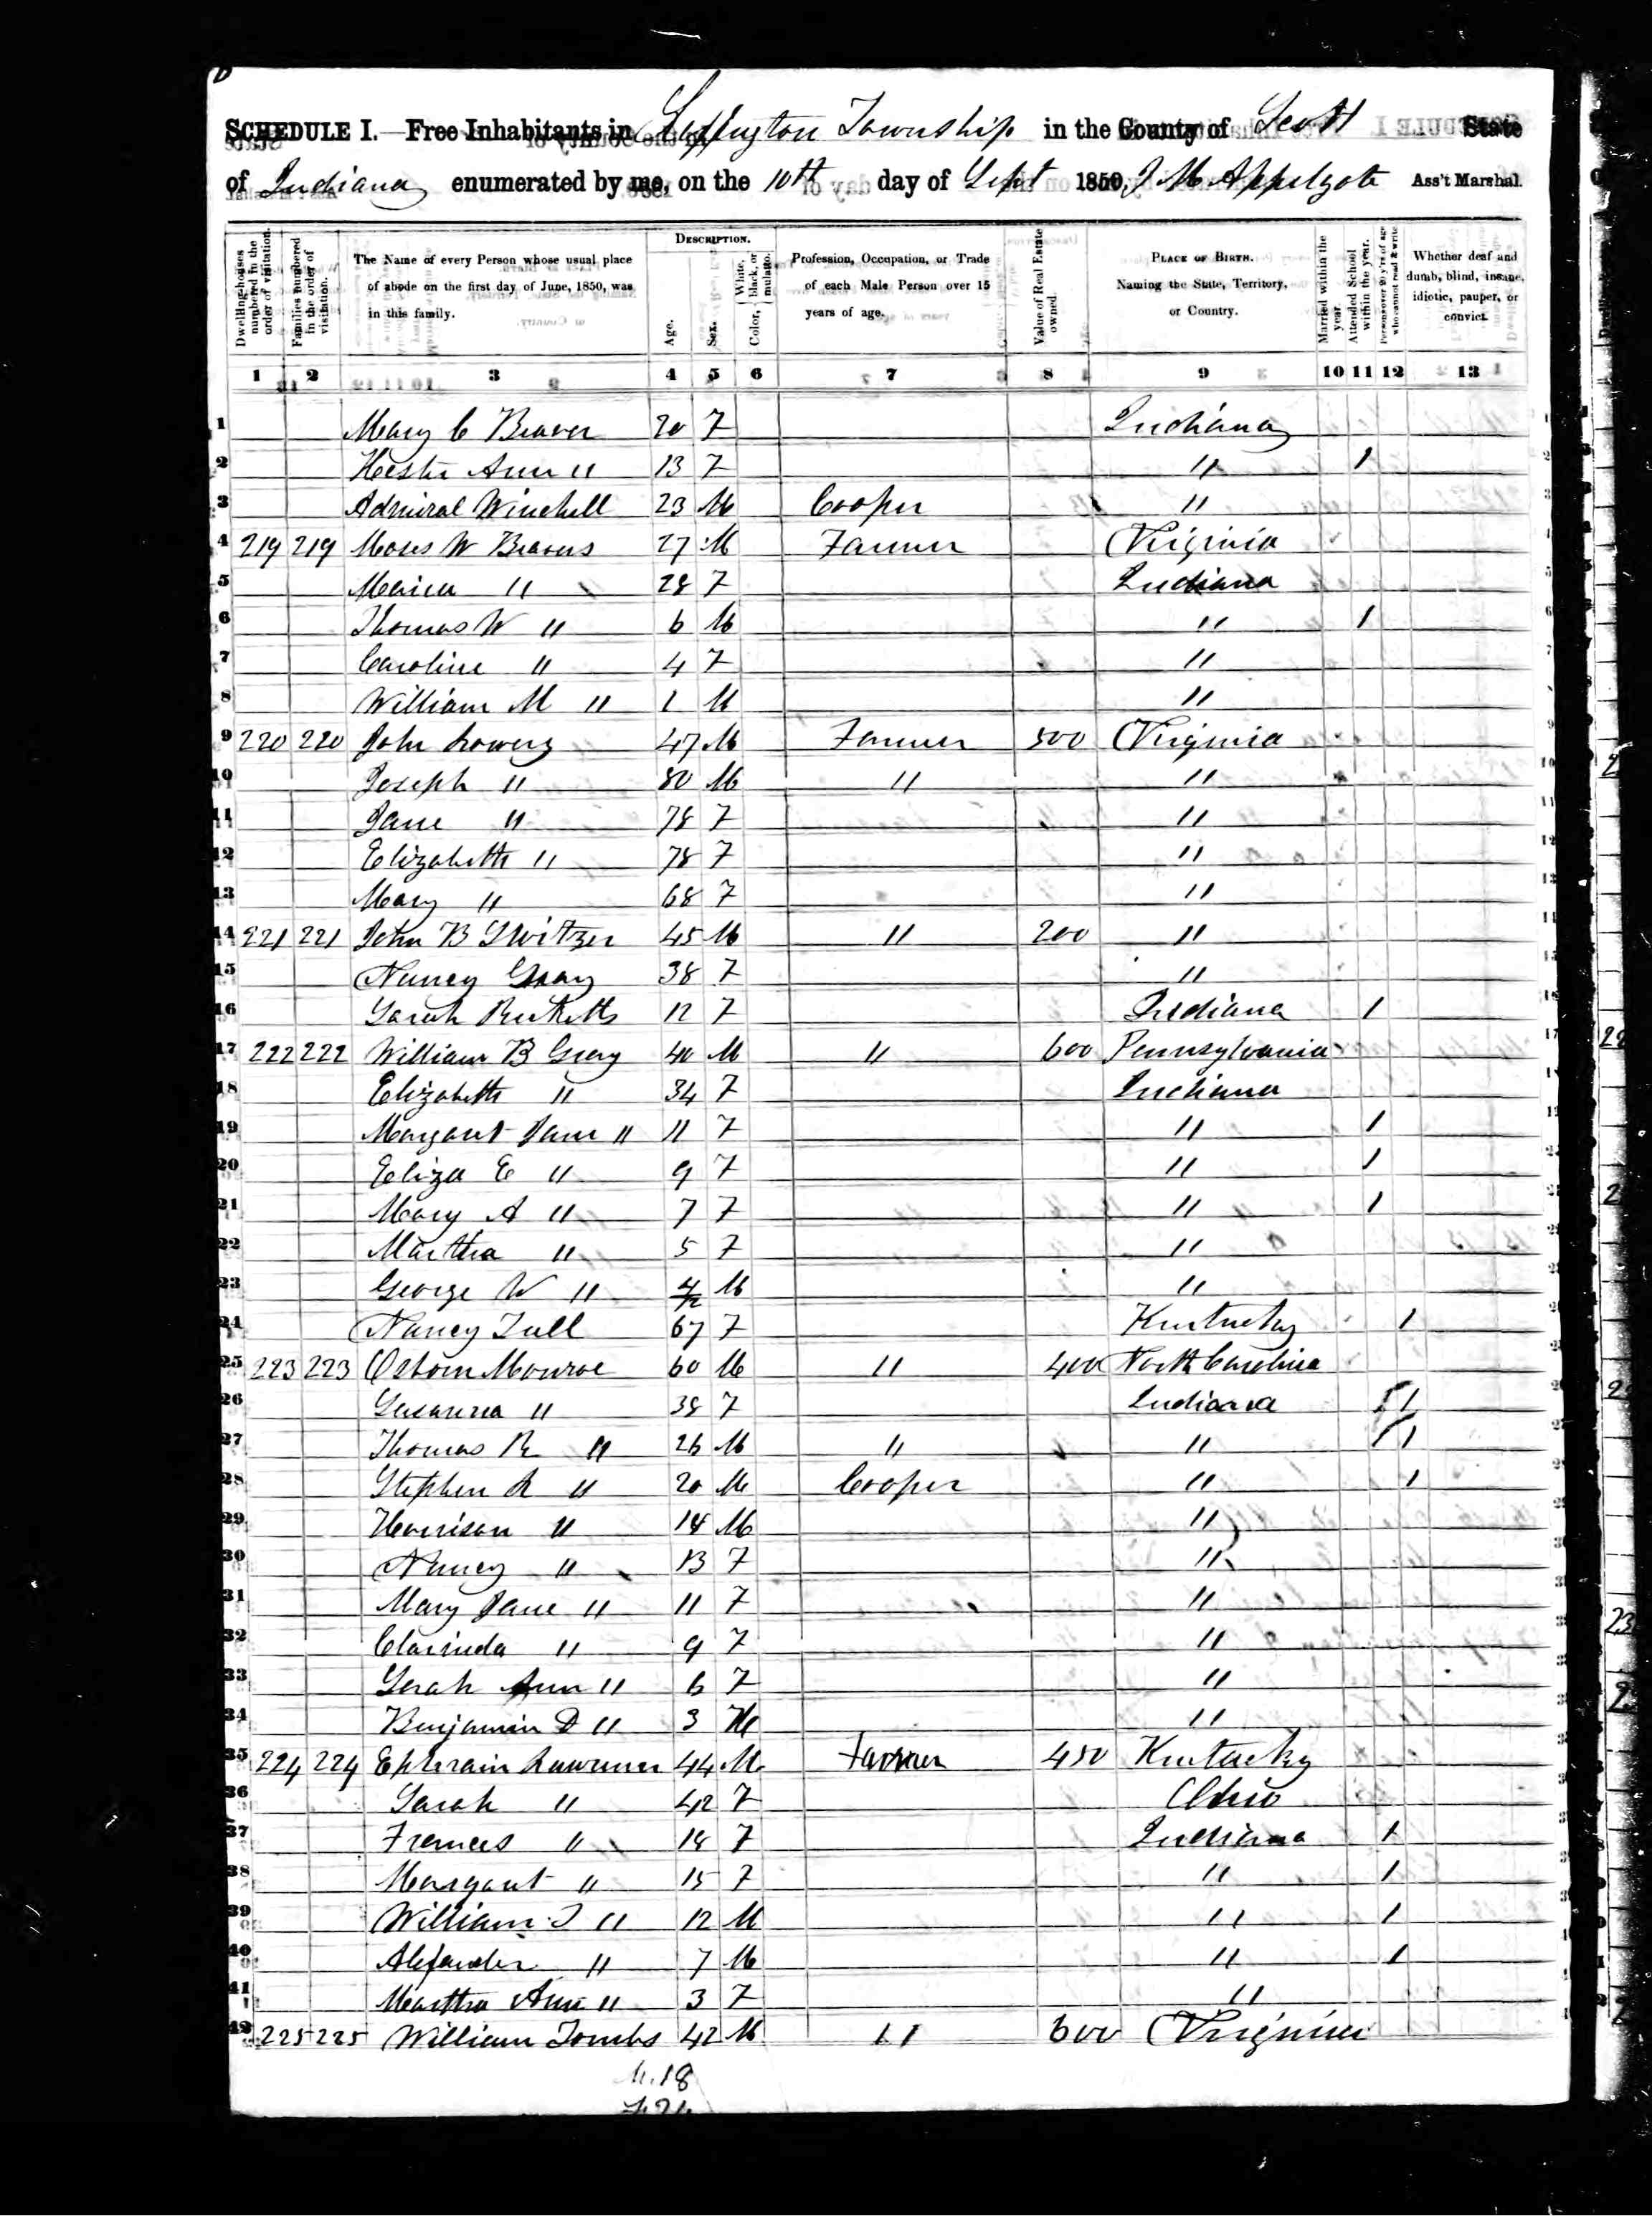 SCHEDULE I. Free Inhabitants in Lexington Township in the County of Scott State
of Indiana enumerated by me, on the 10th day of Sept 1850. J M Applegate Ass't Marshal.
Dwelling-houses numbered in the order of visitation.
Families numbered in the order of visitation.
The Name of every Person whose usual place of abode on the first day of June, 1850, was in this family.
DESCRIPTION.
Age.
Sex.
Color, White, black, or mulatto.
Profession, Occupation, or Trade of each Male Person over 15 years of age.
Value of Real Estate owned.
PLACE OF BIRTH. Naming the State, Territory, or Country.
Married within the year.
Attended School within the year.
Persons over 20 y'rs of age who cannot read & write
Whether deaf and dumb, blind, insane, idiotic, pauper, or convict.
1 2 3 4 5 6 7 8 9 10 11 12 13
1 Mary C Beaver 20 F Indiana
2 Hester Ann " 13 F " 1
3 Admiral Winchell 23 M Cooper "
4 219 219 Moses W Beavers 27 M Farmer Virginia
5 " 28 F Indiana
6 Thomas W " 6 M " 1
7 Caroline " 4 F "
8 William M " 1 M "
9 220 220 John Lowery 47 M Farmer 500 Virginia
10 Joseph " 80 M " "
11 Jane " 78 F "
12 Elizabeth " 78 F "
13 Mary " 68 F "
14 221 221 John B Switzer 45 M " 200 "
15 Nancy Gray 38 F "
16 Sarah Ricketts 12 F Indiana 1
17 222 222 William B Gray 40 M " 600 Pennsylvania
18 Elizabeth " 34 F Indiana
19 Margaret Jane " 11 F " 1
20 Eliza E " 9 F " 1
21 Mary A " 7 F " 1
22 Martha " 5 F "
23 George W " 4/12 M "
24 Nancy Tull 67 F Kentucky 1
25 223 223 Osborn Monroe 60 M " 400 North Carolina
26 Susanna " 38 F Indiana 1
27 Thomas R " 26 M " " 1
28 Stephen R " 20 M Cooper " 1
29 Harrison " 14 M "
30 Nancy " 13 F "
31 Mary Jane " 11 F "
32 Clarinda " 9 F "
33 Sarah Ann " 6 F "
34 Benjamin D " 3 M "
35 224 224 Ephraim Lawrence 44 M Farmer 450 Kentucky
36 Sarah " 42 F Ohio
37 Frances " 18 F Indiana 1
38 Margaret " 15 F " 1
39 William T " 12 M " 1
40 Alexander " 7 M " 1
41 Martha Ann " 3 F "
42 225 225 William Tombs 42 M " 600 Virginia
M. 18
F 24